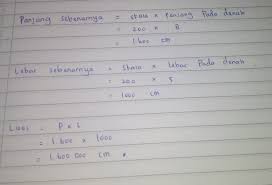 Panjang sebenarnya = skala x panjang pada denah
= 200 x 8
= 1.600 cm
Lebar sebenarnya = skala x lebar pada denah
= 200 x 5
= 1000 cm
Luas = P x l
= 1.600 x 1000
= 1.600 000 cm